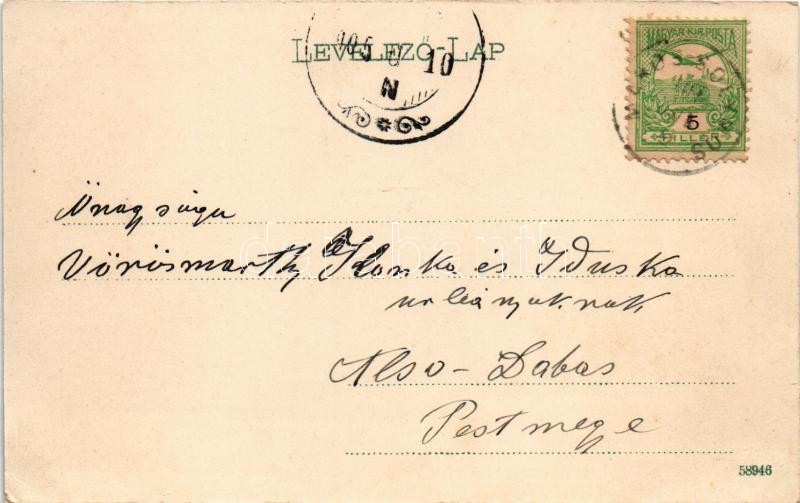 LEVELEZŐ-LAP
905
10
N
MAGYAR KIR. POSTA
5
FILLÉR
Önagysága
Vörösmarthy Ilonka és Iduska
urleányoknak
Alsó-Dabas
Pestmegye
58946
darabanth